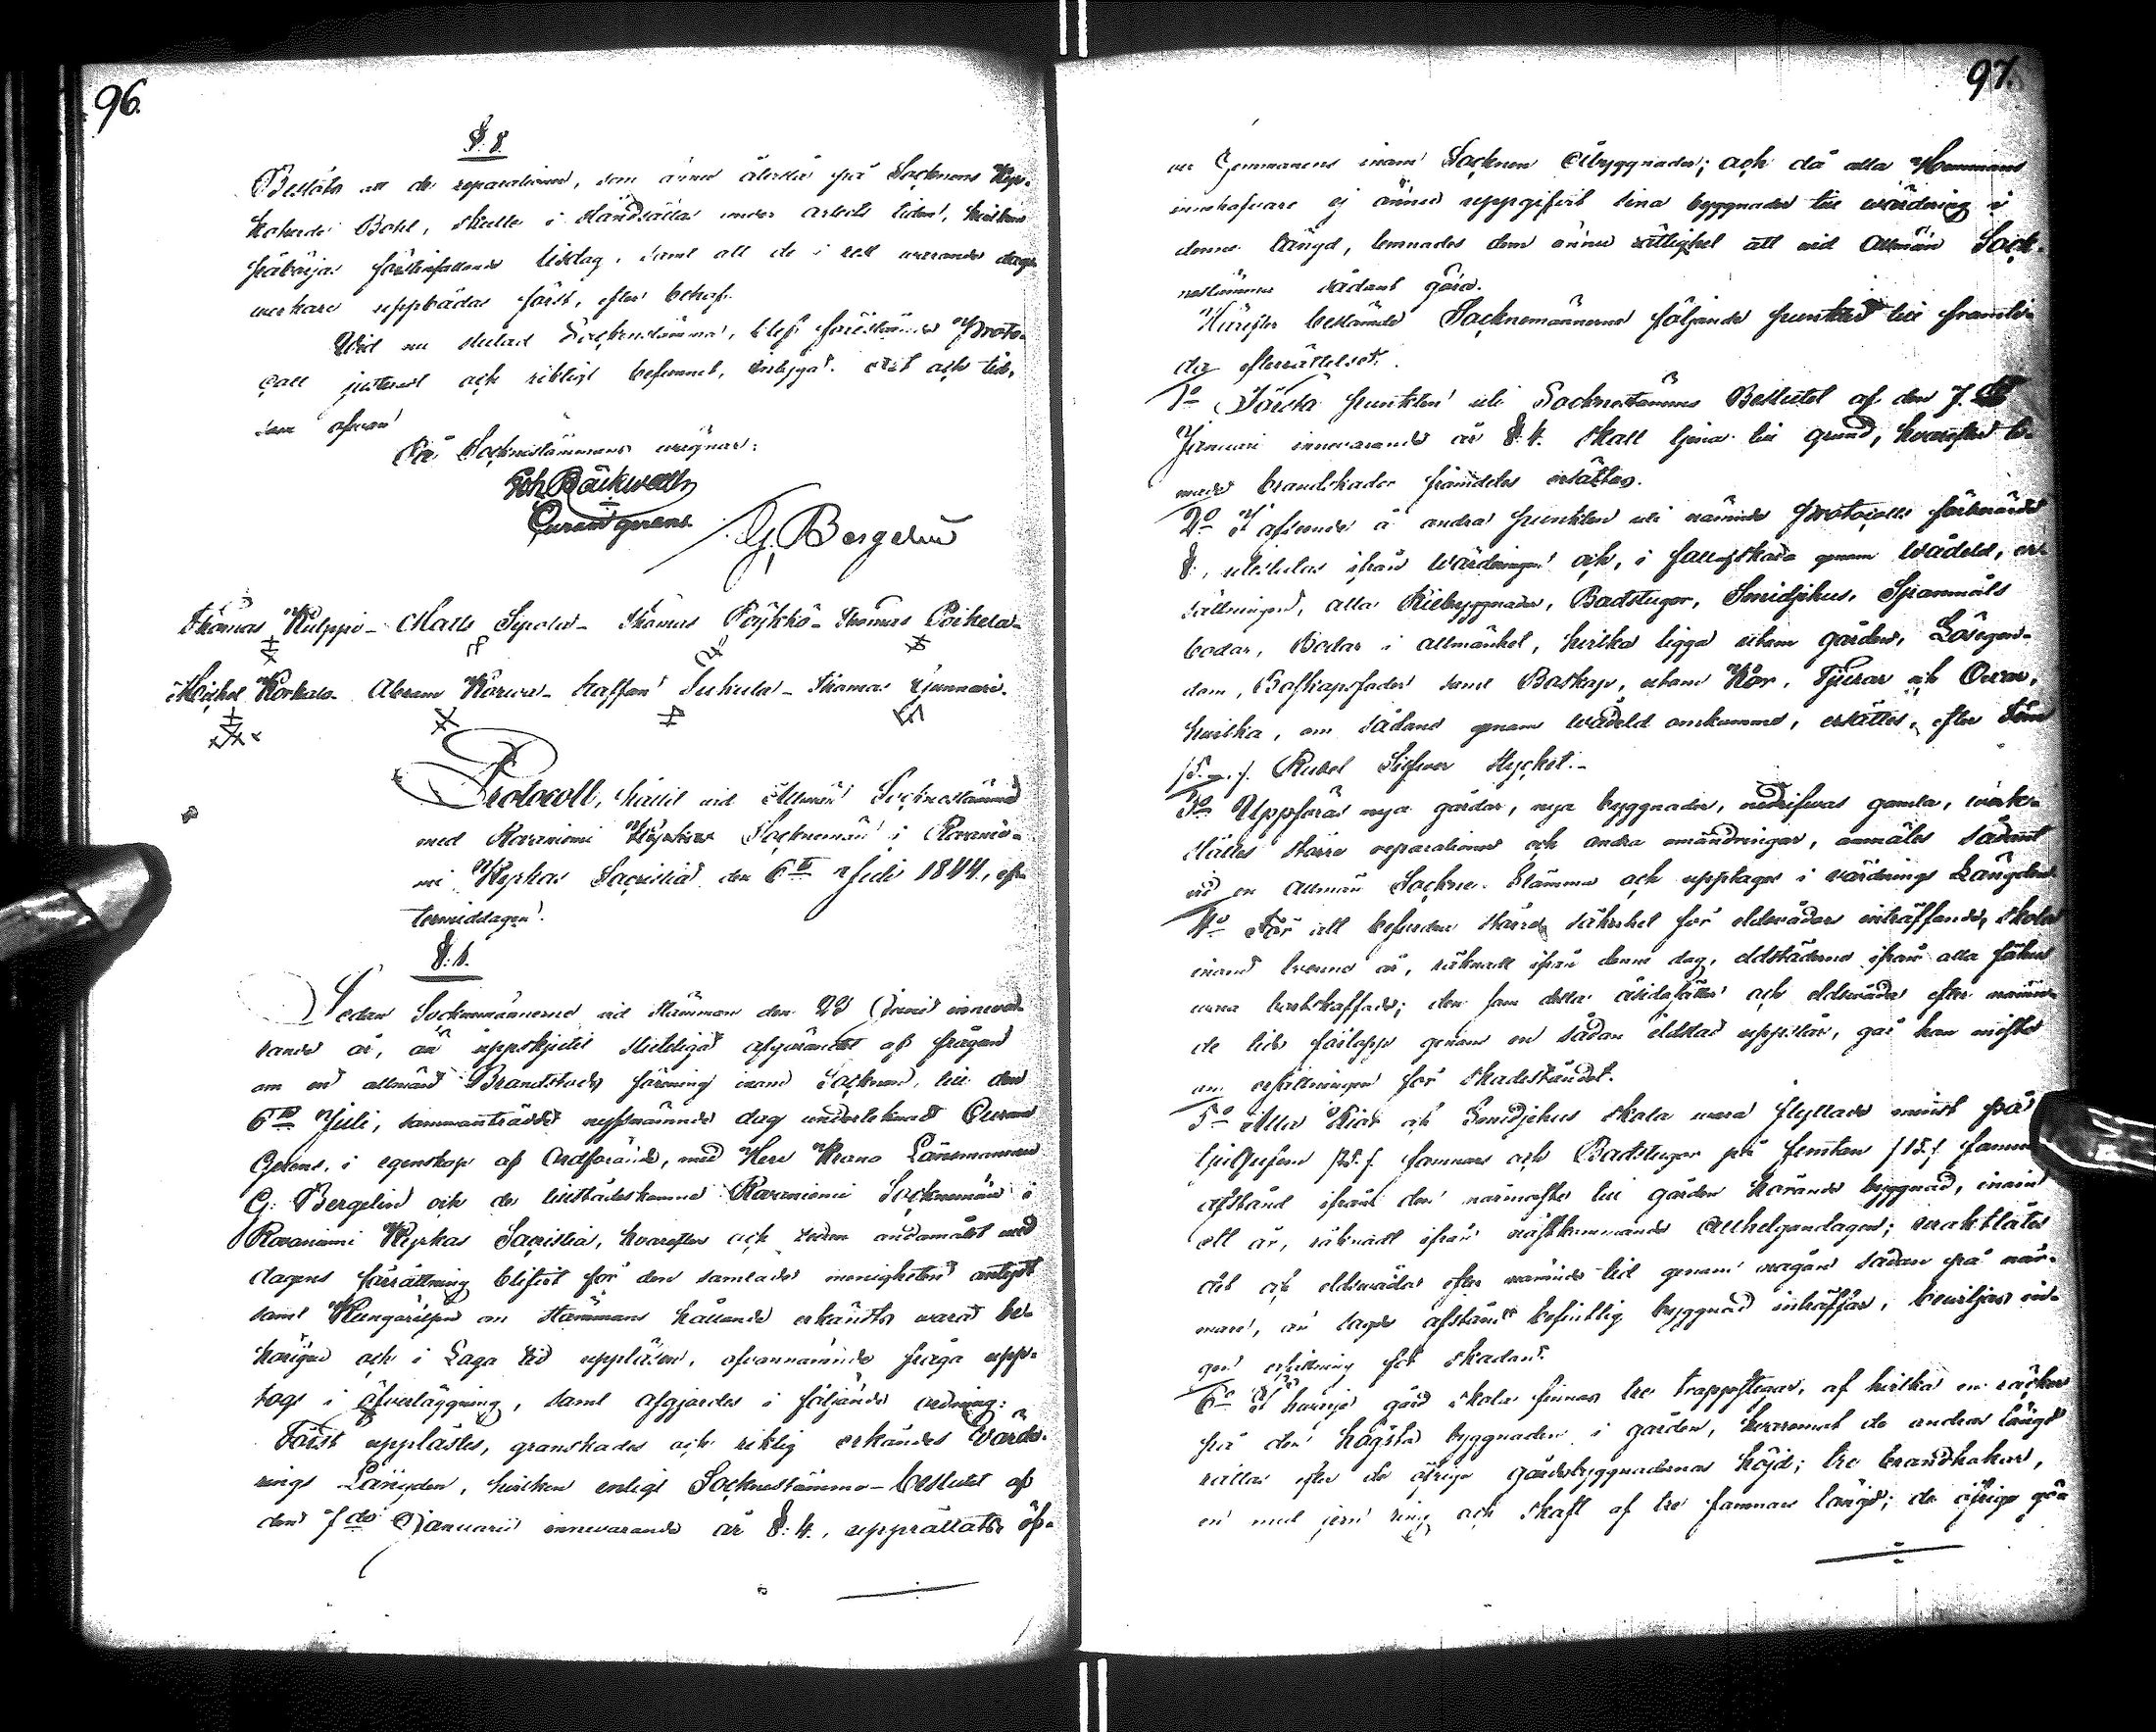 96.
§. 8.
Beslöts att de reparationer, som ännu återstå på Socknens Kyr-
koherde Bohl, skulle i ställas under arbets tiden, hvilken
påbörjas förstinfallande tisdag, samt att de i rest warande dags-
werkare uppbådas först, efter behof.
Wid nu slutad Sockenstämma, blef förestående Proto-
coll justeradt och riktigt befunnet, betygar. Ort och tid,
som ofvan
På Socknestämmans wägnar:
Joh Bäckwall
Curam gerens.
G. Bergelin
Thomas Kulppi - Matts Sipola - Thomas Pöykkö - Thomas Poikela -
Michel Korkalo - Abram Korwa - Staffan Suhula - Thomas Gunnari.
Protocoll, hållit vid Allmän Socknestämma
med Rovaniemi Kyrkos Socknemän i Rovanie-
mi Kyrkas Sacristia den 6te Juli 1844, ef-
termiddagen.
§. 1.
Sedan Socknemännerne vid stämman den 22 Junii inneva-
rande år, än uppskjutit slutliga afgörandet af frågan
om en allmän Brandstods förening inom Socknen, till den
6te Juli, sammanträdde nyssnämnde dag undertecknad Curam
Gerens, i egenskap af Ordförande, med Herr Krono Länsmannen
G. Bergelin och de tillstädeskomne Rovaniemi Socknemän i
Rovaniemi Kyrkas Sacristia, hvarefter och sedan ändamålet med
dagens förrättning blifvit för den samlade menigheten antydt
samt Kungörelsen om stämmans hållande erkänts warit be-
hörigen och i Laga tid uppläsen, ofvannämnde fråga upp-
togs i öfverläggning, samt afgjordes i följande ordning:
Först upplästes, granskades och riktig erkändes Värde-
rings Längden, hvilken enligt Socknestämmo-beslutet af
den 7de Januarii innevarande år §: 4., upprättats öf-
97.
ver Hemmanens inom Socknen Åbyggnader; och då alla Hemmans
innehafvare ej ännu uppgifvit sina byggnader till wärdering i
denna längd, lemnades dem ännu rättighet att vid Allmän Sock-
nestämma sådant göra.
Härefter bestämde Socknemännerne följande punkter till framti-
da efterrättelse:
1o Första punkten uti Socknestämmo Beslutet af den 7. de
Januari innevarande år §: 4. skall tjena till grund, hvarefter ti-
made brandskador framdeles ersättas.
2o I afseende å andra punkten uti nämnde Protocolls förberörde
§., uteslutas ifrån Wärderingen och, i fall af skada genom wådeld, er-
sättningen, alla Riebyggnader, Badstugor, Smidjehus, Spannmåls
bodar, Bodar i allmänhet, hvilka ligga utom gården, Lösegen-
dom, Boskapsfoder samt Boskap, utom Kor, Tjurar och Oxar,
hvilka, om sådane genom wådeld omkomma, ersättas, efter fem
/5./ Rubel Silfver stycket. -
3o Uppföras nya gårdar, nya byggnader, nedrifwas gamla, werk-
ställes större reparationer och andra omändringar, anmäles sådant
vid en allmän Sockne-Stämma och upptages i wärderings Längden.
4o För att befordra större säkerhet för eldswådors inträffande, skola
inom tvenne år, räknadt ifrån denna dag, eldstäderne ifrån alla fähus
vara bortskaffade; den som detta åsidosätter och eldswåda efter nämn-
de tids förlopp genom en sådan eldstad uppstår, går han miste
om ersättningen för skadeståndet.
5o Alla Rior och Smidjehus skola wara flyttade minst på
tjugufem /25./ famnars och Badstugor på femton /15./ famnars
afstånd ifrån den närmaste till gården hörande byggnad, inom
ett år, räknadt ifrån nästkommande Allhelgondagen; uraktlåtes
det och eldswåda efter nämnde tid genom någon sådan på när-
mare, än sagde afstånd befintlig byggnad inträffar, bewiljas in-
gen ersättning för skadan.
6o I hwarje gård skola finnas tre trappstegar, af hvilka en räcker
på den högsta byggnaden i gården, hvaremot de andras längd
rättas efter de öfriga gårdsbyggnadernas höjd; tre brandhakar,
en med jern ring och skaft af tre famnars längd; de öfriga gö-